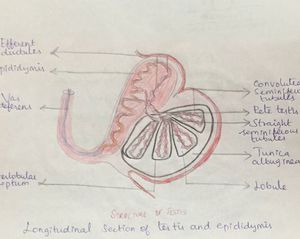 Efferent
ductules
epididymis
Vas
deferens
septum
Convoluted
seminiferous
tubules
Rete testis
Straight
seminiferous
tubules
Tunica
albuginea
Lobule
STRUCTURE OF TESTIS
Longitudinal section of testis and epididymis